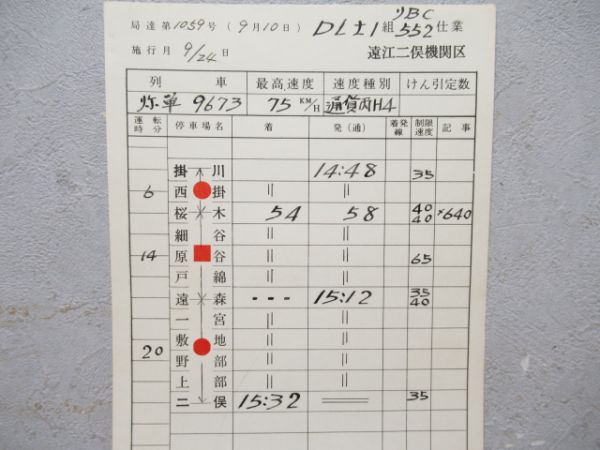 局達第1059号(9月10日) DL±1組 552仕業
施行月 9/24日 遠江二俣機関区
列車 最高速度 速度種別 けん引定数
9673 75KM/H 通貨丙H4
運転時分 停車場名 着 発(通) 着発線 制限速度 記事
掛川 14:48 35
6 西掛 || ||
桜木 54 58 40 40 640
細谷 || ||
14 原谷 || || 65
戸綿 || ||
遠森 --- 15:12 35 40
一宮 || ||
20 敷地 || ||
野部 || ||
上部 || ||
二俣 15:32 35